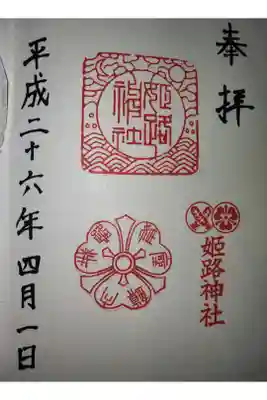 奉拝
姫路神社
姫路
神社
平成二十六年四月一日